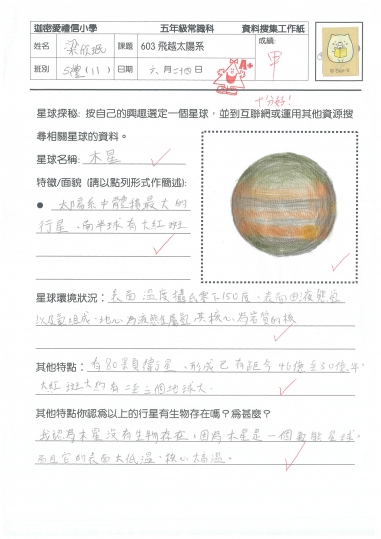 迦密愛禮信小學 五年級常識科 資料搜集工作紙
姓名 梁欣珉 課題 603 飛越太陽系 成績:
甲
班別 5禮(11) 日期 六月二十四日
A+
十分好!
星球探秘: 按自己的興趣選定一個星球,並到互聯網或運用其他資源搜
尋相關星球的資料。
星球名稱: 木星
特徵/面貌 (請以點列形式作簡述):
● 太陽系中體積最大的
行星、南半球有大紅斑
星球環境狀況: 表面溫度攝氏零下150度、表面由液態
其核心為岩質的核
其他特點: 有80顆衛星、形成已有距今46億至50億年、
大紅斑大約有二至三個地球大。
其他特點你認為以上的行星有生物存在嗎?為甚麼?
我認為木星沒有生物存在,因為木星是一個氣態星球,
而且它的表面太低溫、核心太高溫。